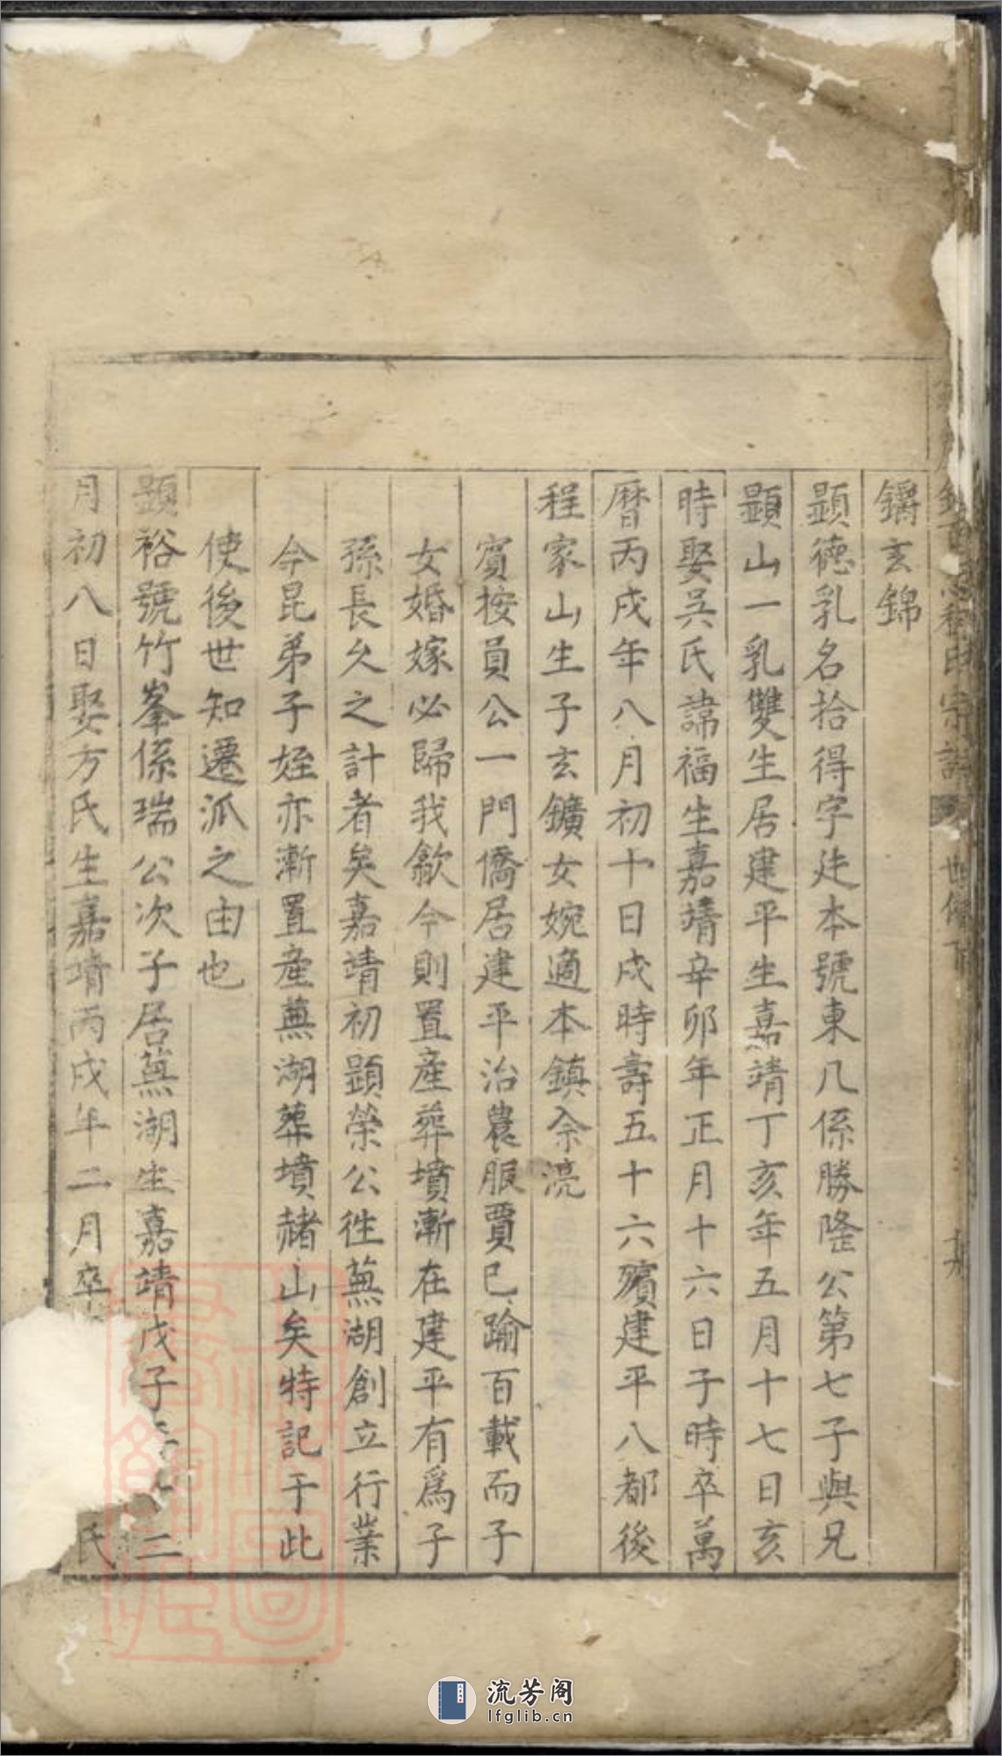 鑄玄錦
顕德乳名拾得字廷本號東几係勝隆公第七子與兄
顕山一乳雙生居建平生嘉靖丁亥年五月十七日亥
時娶吳氏諱福生嘉靖辛卯年正月十六日子時卒萬
曆丙戌年八月初十日戌時壽五十六殯建平八都後
程家山生子玄鑛女婉適本鎮余涜
賓按員公一門僑居建平治農服賈已踰百載而子
女婚嫁必歸我歙今則置産葬墳漸在建平有爲子
孫長久之計者矣嘉靖初顕榮公徃蕪湖創立行業
今昆弟子姪亦漸置産蕪湖葬墳赭山矣特記于此
使後世知遷派之由也
顕裕號竹峯係瑞公次子居蕪湖生嘉靖戊子年二
月初八日娶方氏生嘉靖丙戌年二月卒氏
流芳阁
lfglib.cn